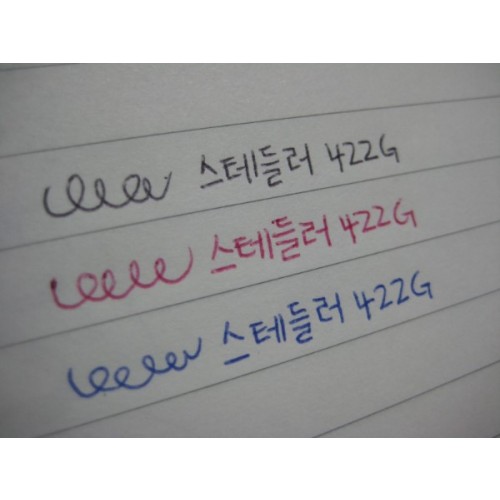 스테들러 422G
스테들러 422G
스테들러 422G